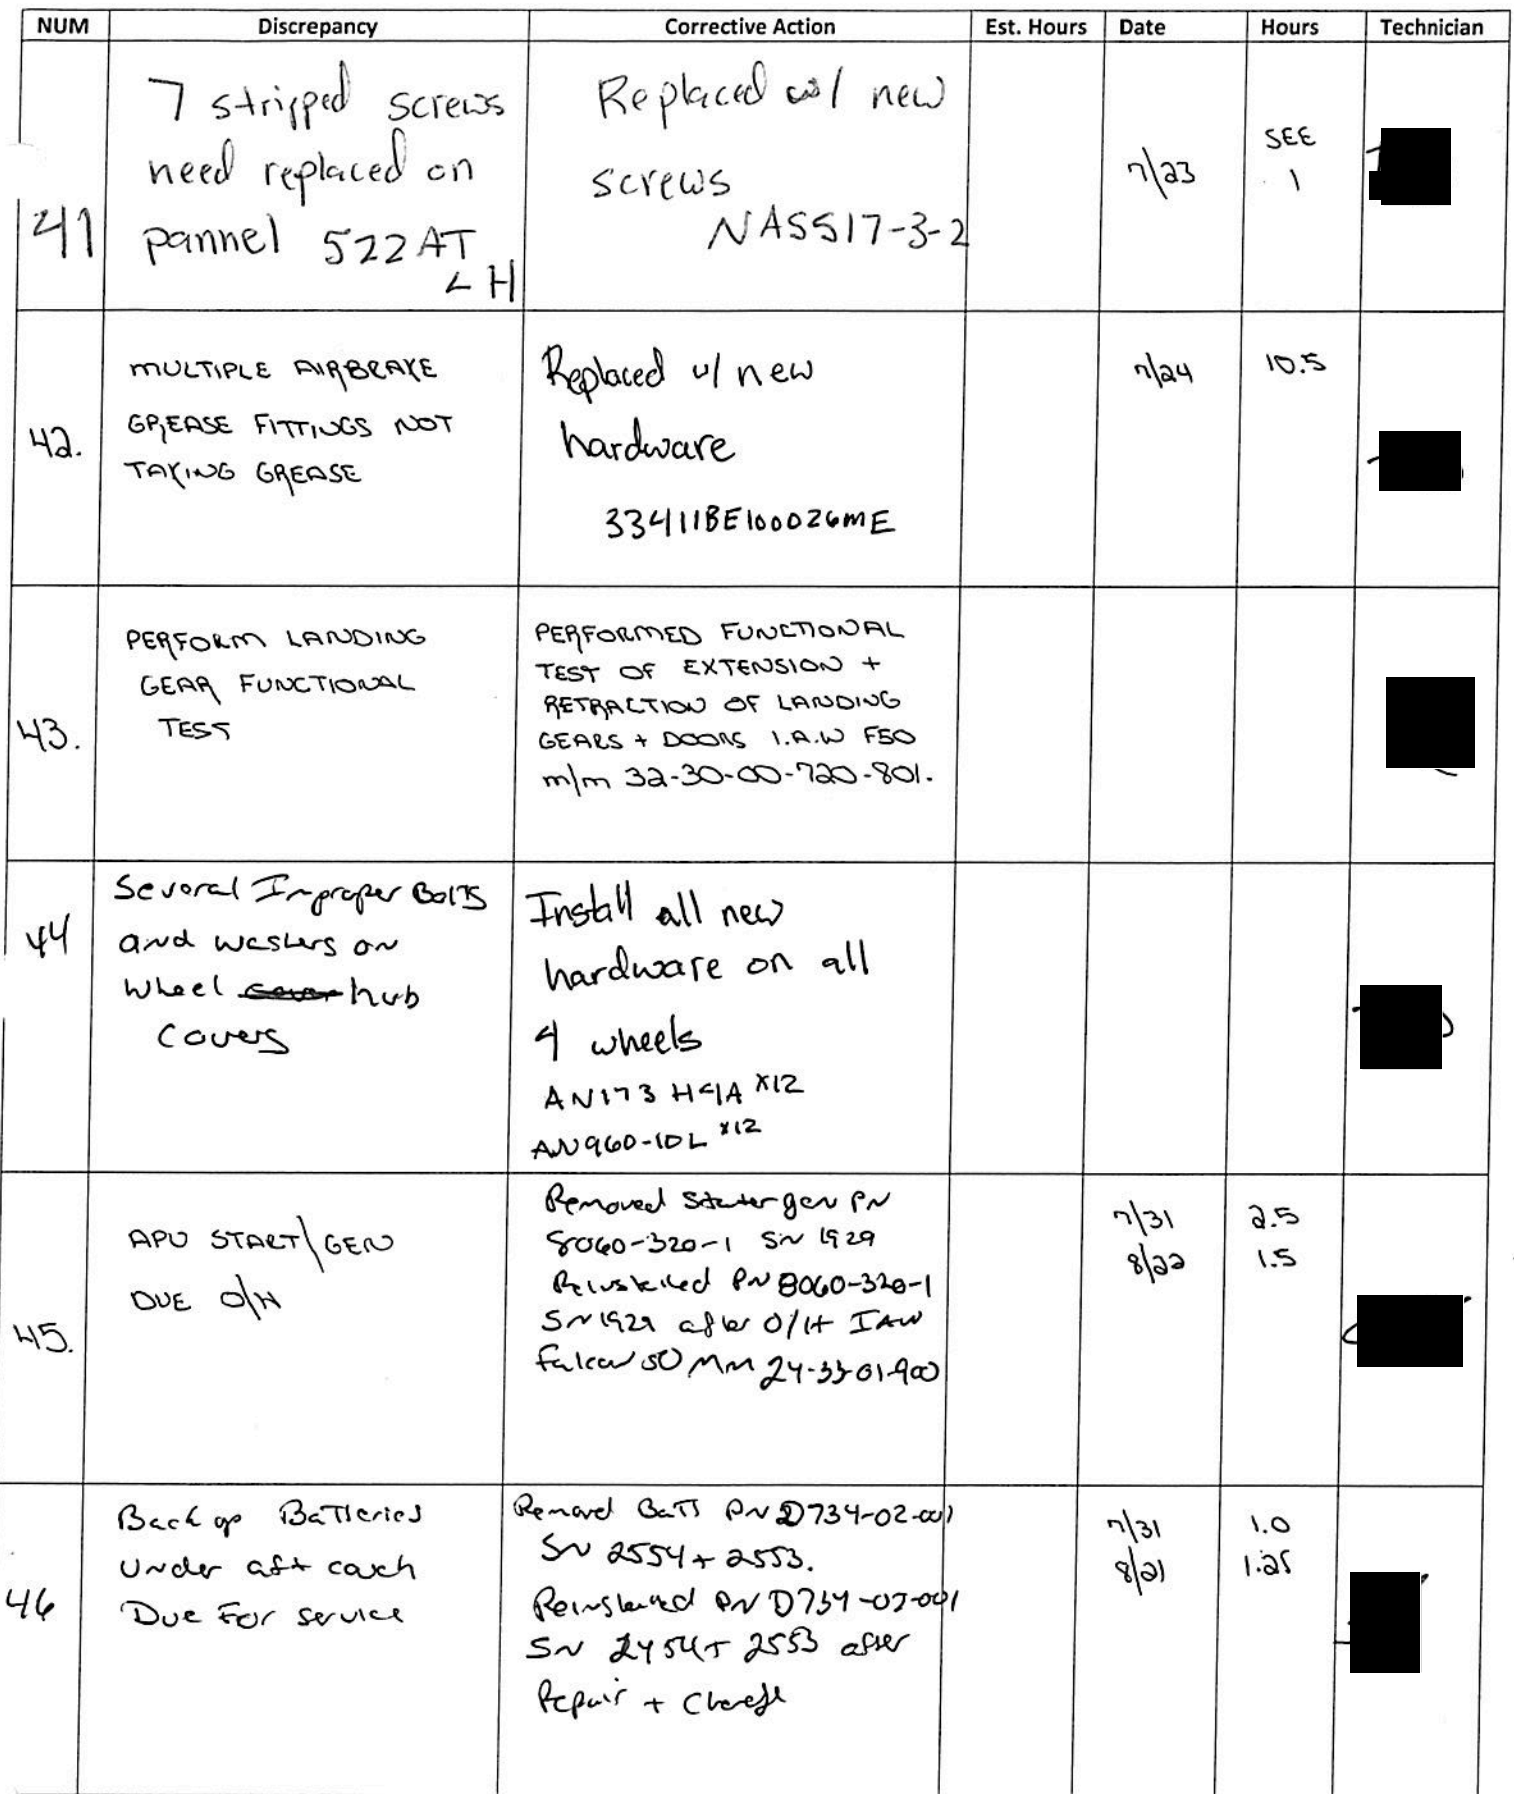 NUM Discrepancy Corrective Action Est. Hours Date Hours Technician
41
7 stripped screws
need replaced on
pannel 522AT
LH
Replaced w/ new
screws
NAS517-3-2
7/23
SEE
1
42.
MULTIPLE AIRBRAKE
GREASE FITTINGS NOT
TAKING GREASE
Replaced w/ new
hardware
33411BE100026ME
7/24
10.5
43.
PERFORM LANDING
GEAR FUNCTIONAL
TEST
PERFORMED FUNCTIONAL
TEST OF EXTENSION +
RETRACTION OF LANDING
GEARS + DOORS I.A.W F50
m/m 32-30-00-720-801.
44
Several Improper Bolts
and washers on
wheel cover hub
covers
Install all new
hardware on all
4 wheels
AN173 H4A x12
AN960-10L x12
45.
APU START/GEN
DUE O/H
Removed Starter gen PN
8060-320-1 SN 1929
Reinstalled PN 8060-320-1
SN 1929 after O/H IAW
Falcon 50 MM 24-33-01-900
7/31 2.5
8/22 1.5
46
Back up Batteries
Under aft couch
Due For service
Removed Batt PN D734-02-001
SN 2554 + 2553.
Reinstalled PN D734-02-001
SN 2454 + 2553 after
Repair + Charge
7/31 1.0
8/21 1.25